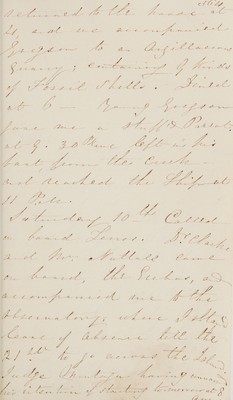 1864
returned to the house at
4, and we accompanied
Gregson to an Argillaceous
Quarry: containing 4 kinds
of Fossil Shells. Dined
at 6 — Young Gregson
gave me a stuff'd Parrot
at 8.30 we left in his
boat from the Creek
and reached the Ship at
11 P.M.
Saturday 10th Called
on board Dr Clarke
and Mr Nuttall came
on board, the Erebus, and
accompanied me to the
Observatory, where I
leave of absence till the
21st to go across the
Judge having
his intention of starting tomorrow